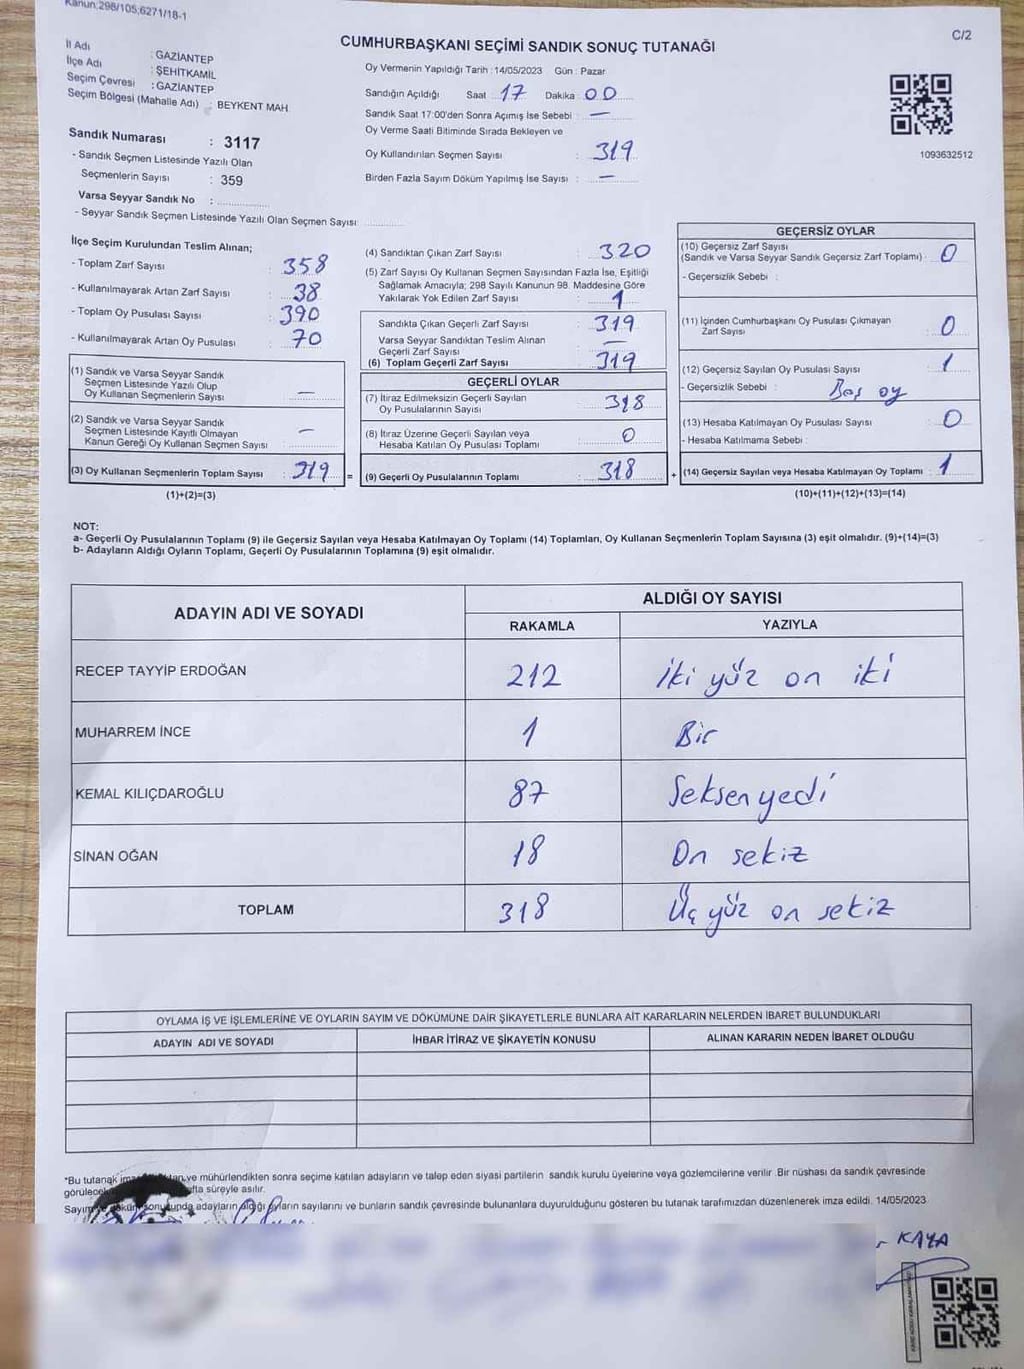 Kanun:298/105;6271/18-1
C/2
CUMHURBAŞKANI SEÇİMİ SANDIK SONUÇ TUTANAĞI
İl Adı : GAZİANTEP
İlçe Adı : ŞEHİTKAMİL
Seçim Çevresi : GAZİANTEP
Seçim Bölgesi (Mahalle Adı) : BEYKENT MAH.
Sandık Numarası : 3117
- Sandık Seçmen Listesinde Yazılı Olan
Seçmenlerin Sayısı : 359
Varsa Seyyar Sandık No :
- Seyyar Sandık Seçmen Listesinde Yazılı Olan Seçmen Sayısı:
Oy Vermenin Yapıldığı Tarih : 14/05/2023 Gün : Pazar
Sandığın Açıldığı Saat 17 Dakika 00
Sandık Saat 17:00'den Sonra Açımış İse Sebebi : —
Oy Verme Saati Bitiminde Sırada Bekleyen ve
Oy Kullandırılan Seçmen Sayısı : 319
Birden Fazla Sayım Döküm Yapılmış İse Sayısı : —
1093632512
İlçe Seçim Kurulundan Teslim Alınan;
- Toplam Zarf Sayısı : 358
- Kullanılmayarak Artan Zarf Sayısı : 38
- Toplam Oy Pusulası Sayısı : 390
- Kullanılmayarak Artan Oy Pusulası : 70
(1) Sandık ve Varsa Seyyar Sandık
Seçmen Listesinde Yazılı Olup
Oy Kullanan Seçmenlerin Sayısı : —
(2) Sandık ve Varsa Seyyar Sandık
Seçmen Listesinde Kayıtlı Olmayan
Kanun Gereği Oy Kullanan Seçmen Sayısı : —
(3) Oy Kullanan Seçmenlerin Toplam Sayısı : 319 =
(1)+(2)=(3)
(4) Sandıktan Çıkan Zarf Sayısı : 320
(5) Zarf Sayısı Oy Kullanan Seçmen Sayısından Fazla İse, Eşitliği
Sağlamak Amacıyla; 298 Sayılı Kanunun 98. Maddesine Göre
Yakılarak Yok Edilen Zarf Sayısı : 1
Sandıkta Çıkan Geçerli Zarf Sayısı : 319
Varsa Seyyar Sandıktan Teslim Alınan
Geçerli Zarf Sayısı : —
(6) Toplam Geçerli Zarf Sayısı : 319
GEÇERLİ OYLAR
(7) İtiraz Edilmeksizin Geçerli Sayılan
Oy Pusulalarının Sayısı : 318
(8) İtiraz Üzerine Geçerli Sayılan veya
Hesaba Katılan Oy Pusulası Toplamı : 0
(9) Geçerli Oy Pusulalarının Toplamı : 318 +
GEÇERSİZ OYLAR
(10) Geçersiz Zarf Sayısı
(Sandık ve Varsa Seyyar Sandık Geçersiz Zarf Toplamı) : 0
- Geçersizlik Sebebi :
(11) İçinden Cumhurbaşkanı Oy Pusulası Çıkmayan
Zarf Sayısı : 0
(12) Geçersiz Sayılan Oy Pusulası Sayısı : 1
- Geçersizlik Sebebi : Boş oy
(13) Hesaba Katılmayan Oy Pusulası Sayısı : 0
- Hesaba Katılmama Sebebi :
(14) Geçersiz Sayılan veya Hesaba Katılmayan Oy Toplamı : 1
(10)+(11)+(12)+(13)=(14)
NOT:
a- Geçerli Oy Pusulalarının Toplamı (9) ile Geçersiz Sayılan veya Hesaba Katılmayan Oy Toplamı (14) Toplamları, Oy Kullanan Seçmenlerin Toplam Sayısına (3) eşit olmalıdır. (9)+(14)=(3)
b- Adayların Aldığı Oyların Toplamı, Geçerli Oy Pusulalarının Toplamına (9) eşit olmalıdır.
ADAYIN ADI VE SOYADI
ALDIĞI OY SAYISI
RAKAMLA YAZIYLA
RECEP TAYYİP ERDOĞAN 212 İki yüz on iki
MUHARREM İNCE 1 Bir
KEMAL KILIÇDAROĞLU 87 Seksen yedi
SİNAN OĞAN 18 On sekiz
TOPLAM 318 Üç yüz on sekiz
OYLAMA İŞ VE İŞLEMLERİNE VE OYLARIN SAYIM VE DÖKÜMÜNE DAİR ŞİKAYETLERLE BUNLARA AİT KARARLARIN NELERDEN İBARET BULUNDUKLARI
ADAYIN ADI VE SOYADI İHBAR İTİRAZ VE ŞİKAYETİN KONUSU ALINAN KARARIN NEDEN İBARET OLDUĞU
*Bu tutanak ve mühürlendikten sonra seçime katılan adayların ve talep eden siyasi partilerin sandık kurulu üyelerine veya gözlemcilerine verilir. Bir nüshası da sandık çevresinde
süreyle asılır.
adayların aldığı oyların sayılarını ve bunların sandık çevresinde bulunanlara duyurulduğunu gösteren bu tutanak tarafımızdan düzenlenerek imza edildi. 14/05/2023
KAYA